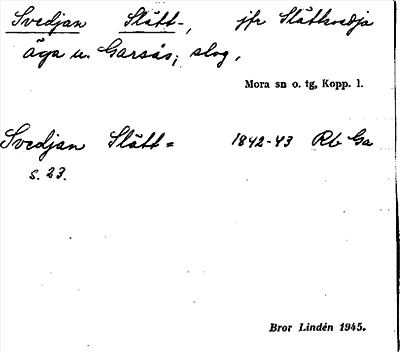 Svedjan Slått-, jfr Slåttsvedja
äga u. Garsås; slog.
Mora sn o. tg, Kopp. l.
Svedjan Slått= 1842-43 Rb Ga
s. 23.
Bror Lindén 1945.